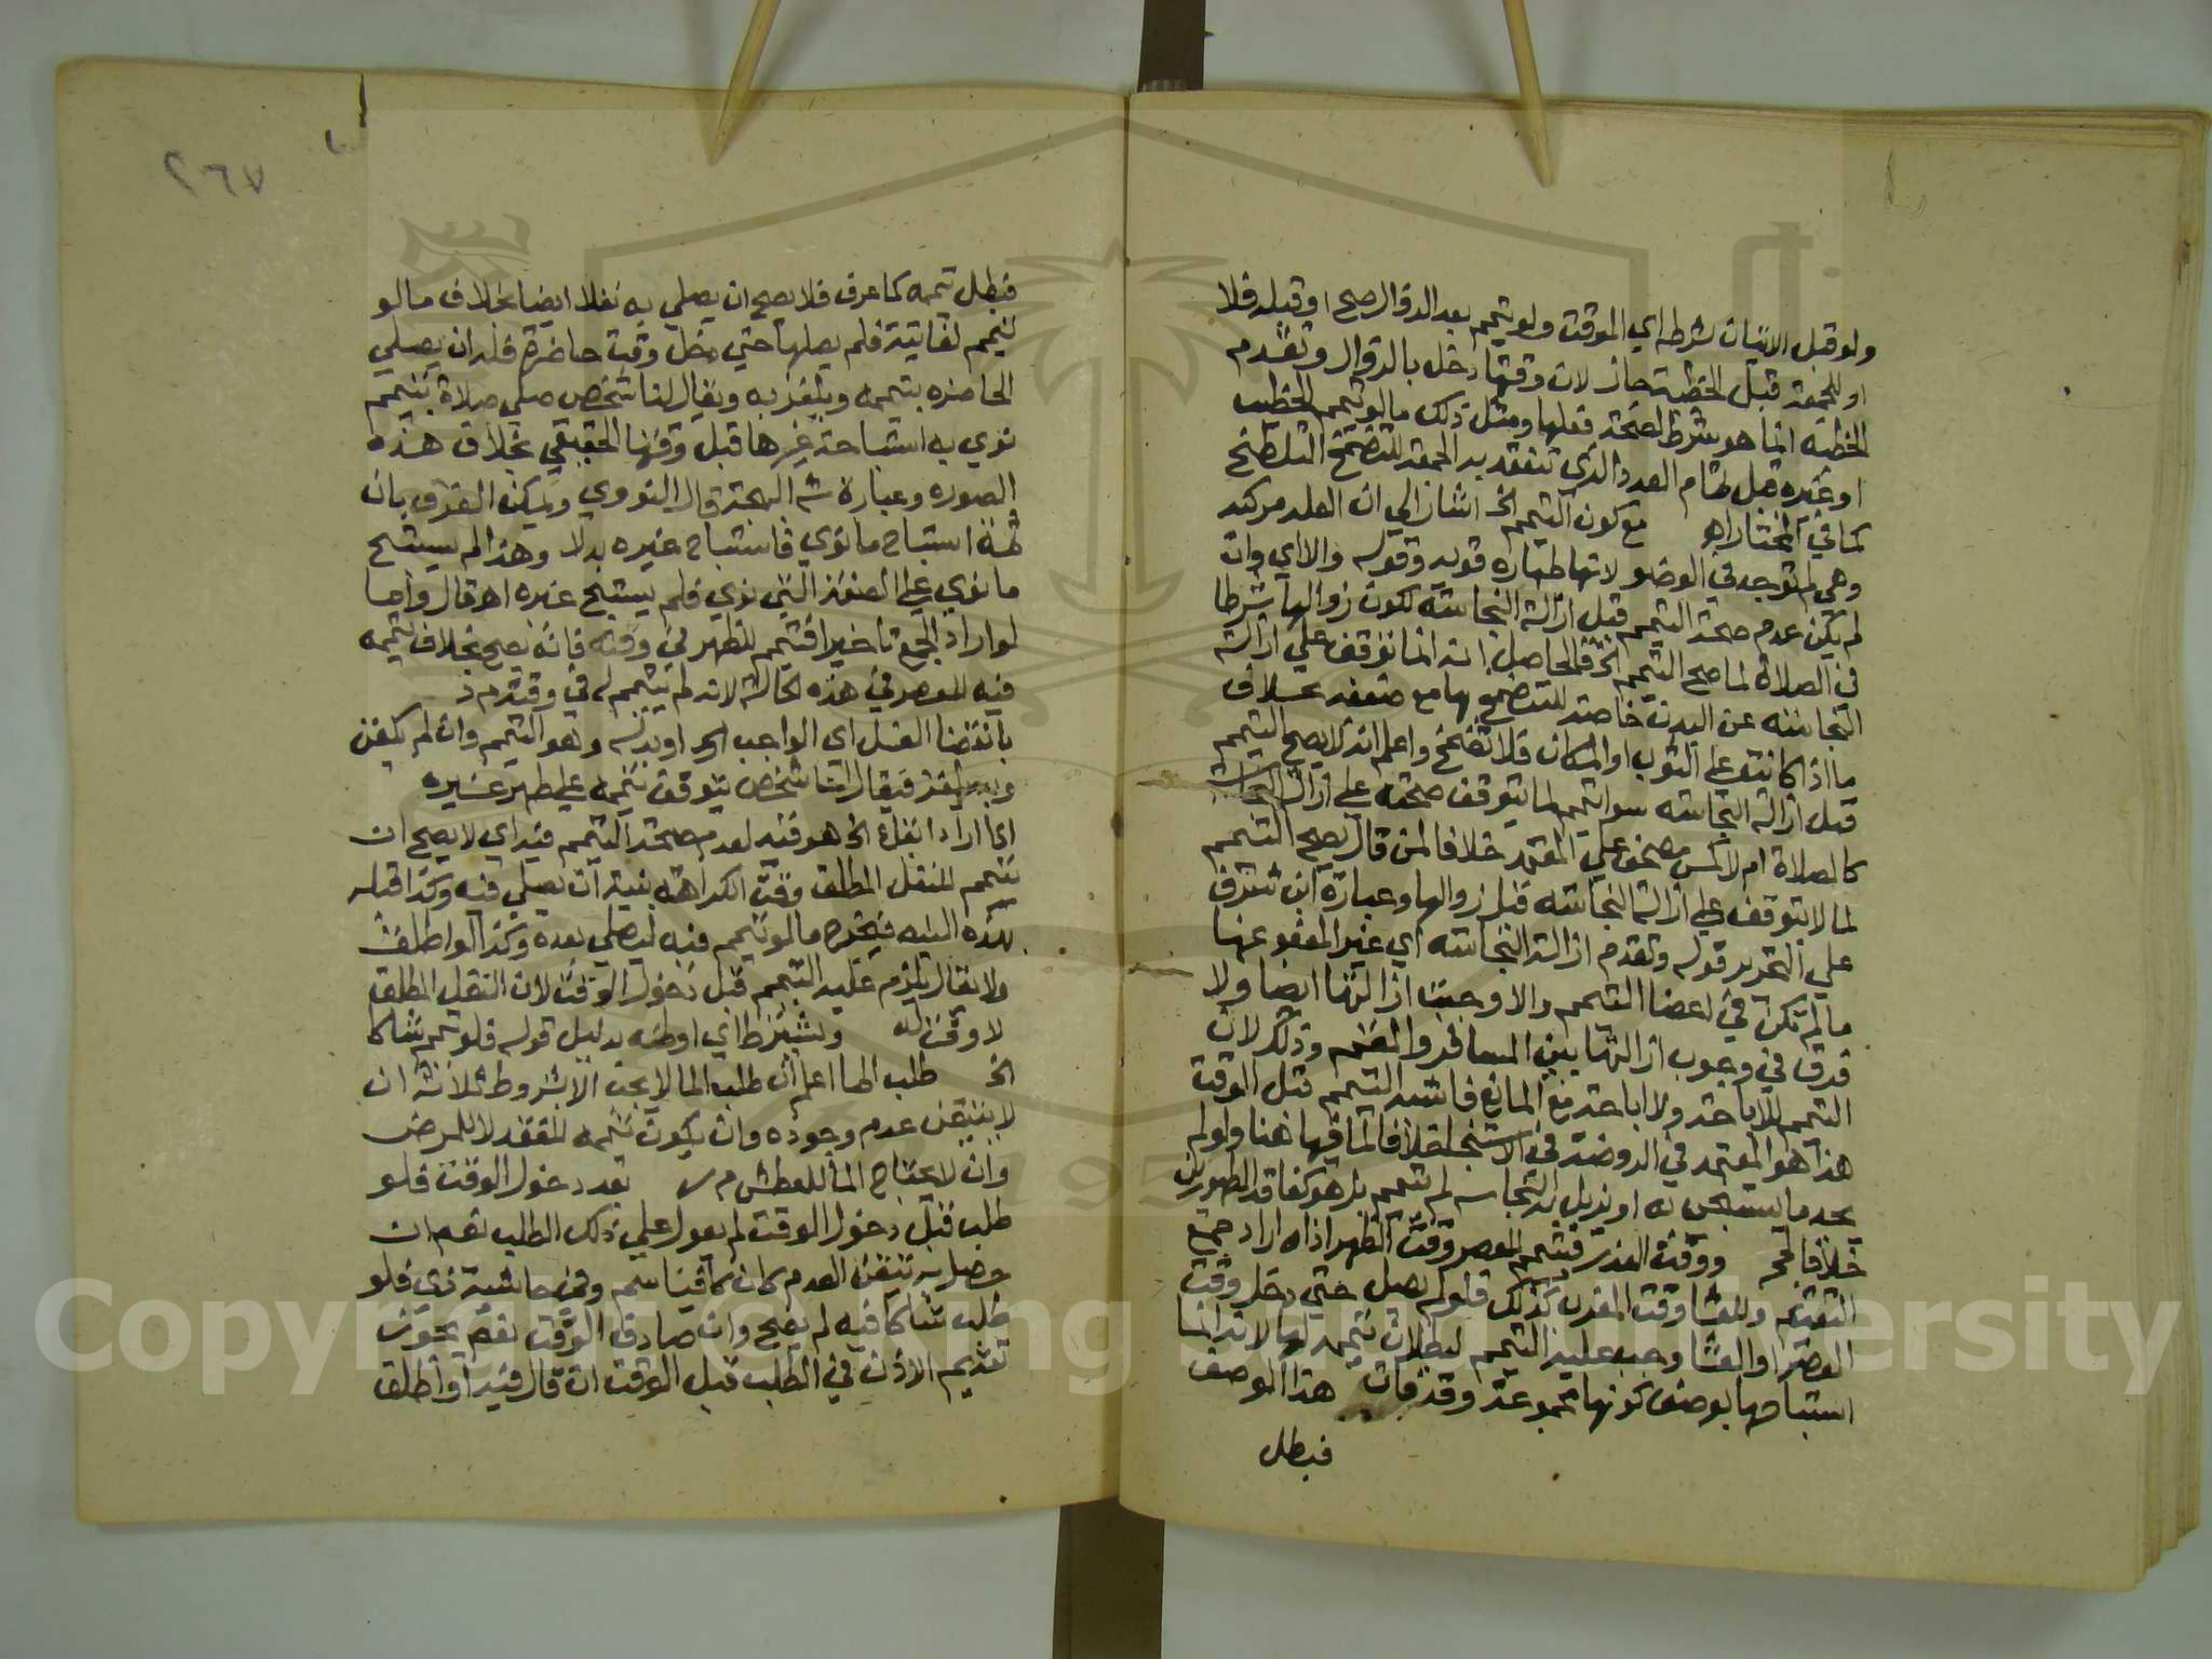 ولو قبل الاتيان بشرطه اي الموقت ولو تيمم بعد الزوال صح او قبله فلا
او للجمعة قبل الخطبة جاز لان وقتها دخل بالزوال وتقدم
الخطبة انما هو شرط لصحة فعلها ومثل ذلك ما لو تيمم الخطيب
او غيره قبل تمام العدد الذي تنعقد به الجمعة للتضمخ التلطخ
كما في المختار اه مع كون التيمم الخ اشار الي ان العلة مركبه
وهي لم توجد في الوضو لانها طهاره قويه وقوله والا اي وان
لم يكن عدم صحة التيمم قبل ازالة النجاسة لكون زوالها شرطا
في الصلاة لما صح التيمم الخ فالحاصل انه انما توقف علي ازالة
النجاسه عن البدن خاصة للتضمخ بها مع ضعفه بخلاف
ما اذا كانت علي الثوب او المكان فلا تضمخ واعلم انه لا يصح التيمم
قبل ازالة النجاسه سوا تيمم لما يتوقف صحته علي ازالة النجاسة
كالصلاة ام لا كمس مصحف علي المعتمد خلافا لمن قال يصح التيمم
لما لا يتوقف علي ازالة النجاسه قبل زوالها وعبارة ابن شرف
علي التحرير قوله وتقدم ازالة النجاسه اي غير المعفو عنها
ما لم تكن في اعضا التيمم والا وجبت ازالتها ايضا ولا
فرق في وجوب ازالتها بين المسافر والمقيم وذلك لان
التيمم للاباحة ولا اباحة مع المانع فاشبه التيمم قبل الوقت
هذا هو المعتمد في الروضة في الاستنجا خلافا لما فيها هنا ولو لم
يجد ما يستنجي به او يزيل به النجاسه لم تيمم بل هو كفاقد الطهورين
خلافا لحج ووقت العذر فيتيمم للعصر وقت الظهر اذا اراد جمع
التقديم وللعشا وقت المغرب كذلك فلو لم يصل حتي دخل وقت
العصر او العشا وجب عليه التيمم لبطلان تيممه لها لانه انما
استباحها بوصف كونها مجموعة وقد فات هذا الوصف
فبطل
٢٦٧
فبطل تيممه كما عرف فلا يصح ان يصلي به نفلا ايضا بخلاف ما لو
تيمم لفائتة فلم يصلها حتي دخل وقت حاضرة فله ان يصلي
الحاضره بتيممه ويلغز به ويقال لنا شخص صلي صلاة بتيمم
نوي به استباحة غيرها قبل وقتها الحقيقي بخلاف هذه
الصوره وعبارة شه البهجة قال النووي ويمكن الفرق بان
ثمة استباح ما نوي فاستباح غيره بدلا وهذا لم يستبح
ما نوي علي الصفة التي نوي فلم يستبح غيره اه قال واما
لو اراد الجمع تاخيرا فتيمم للظهر في وقته فانه يصح بخلاف تيممه
فيه للعصر في هذه الحالة لانه لم تيمم له في وقته م د
بانقضا الغسل اي الواجب الخ او بدله وهو التيمم وان لم يكفن
وبه يلغز فيقال لنا شخص يتوقف تيممه علي طهر غيره
اذا اراد ايقاع الخ هو قيد لعدم صحة التيمم فيه اي لا يصح ان
تيمم للنفل المطلق وقت الكراهة بنية ان يصلي فيه وكذا قبله
بهذه النيه فيخرج ما لو تيمم فيه ليصلي بعده وكذا لو اطلق
ولا يقال يلزم عليه التيمم قبل دخول الوقت لان النفل المطلق
لا وقت له ويشترط اي او ظنه بدليل قوله فلو تيمم شاكا
الخ طلب الما اعلم ان طلب الما لا يجب الا بشروط ثلاثة ان
لا يتيقن عدم وجوده وان يكون تيممه للفقد لا للمرض
وان لا يحتاج الما للعطش م ر بعد دخول الوقت فلو
طلب قبل دخول الوقت لم يعول علي ذلك الطلب نعم ان
حصل به تيقن العدم كان كافيا سم وفي حاشية زي فلو
طلب شاكا فيه لم يصح وان صادف الوقت نعم يجوز
تقديم الاذن في الطلب قبل الوقت ان قال فيه او اطلق
Copyright © King Saud University